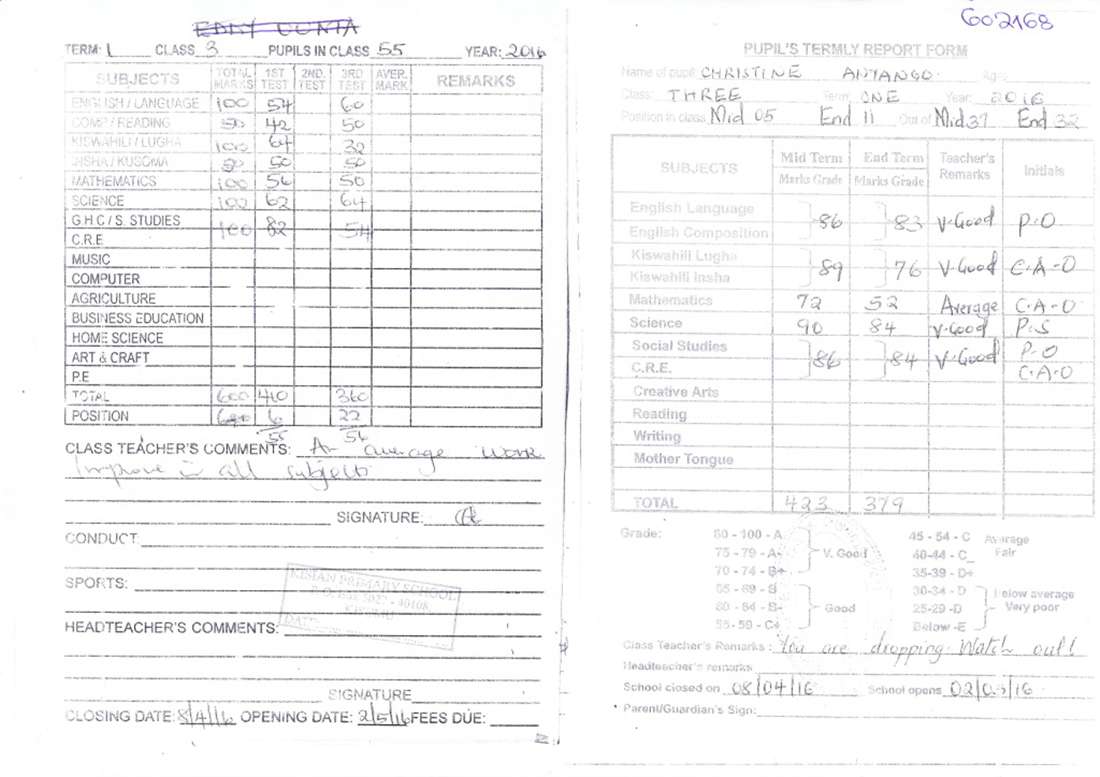 TERM: 1 CLASS 3 PUPILS IN CLASS 55 YEAR: 2016
SUBJECTS TOTAL MARKS 1ST TEST 2ND. TEST 3RD TEST AVER. MARK REMARKS
ENGLISH / LANGUAGE 100 54 60
COMP / READING 50 42 50
KISWAHILI / LUGHA 100 64 32
INSHA / KUSOMA 50 50 50
MATHEMATICS 100 56 50
SCIENCE 100 62 64
G.H.C / S. STUDIES 100 82 54
C.R.E
MUSIC
COMPUTER
AGRICULTURE
BUSINESS EDUCATION
HOME SCIENCE
ART & CRAFT
P.E
TOTAL 600 410 360
POSITION 6 22
55 56
CLASS TEACHER'S COMMENTS: An average work
Improve in all subjects
SIGNATURE:
CONDUCT
SPORTS:
KISIAN PRIMARY SCHOOL
HEADTEACHER'S COMMENTS:
SIGNATURE
CLOSING DATE: 8/4/16 OPENING DATE: 2/5/16 FEES DUE:
602168
PUPIL'S TERMLY REPORT FORM
Name of pupil CHRISTINE ANYANGO Age
Class: THREE Term: ONE Year: 2016
Position in class Mid 05 End 11 Out of Mid 37 End 32
SUBJECTS Mid Term Marks Grade End Term Marks Grade Teacher's Remarks Initials
English Language
English Composition 86 83 V. Good P.O
Kiswahili Lugha
Kiswahili Insha 89 76 V. Good C.A.O
Mathematics 72 52 Average C.A.O
Science 90 84 V. Good P.S
Social Studies 86 84 V. Good P.O
C.R.E. C.A.O
Creative Arts
Reading
Writing
Mother Tongue
TOTAL 423 379
Grade: 80 - 100 - A 45 - 54 - C Average
75 - 79 - A- V. Good 40-44 - C_ Fair
70 - 74 - B+ 35-39 - D+
65 - 69 - B 30-34 - D Below average
60 - 64 - B- Good 25-29 -D Very poor
55 - 59 - C+ Below -E
Class Teacher's Remarks: You are dropping. Watch out!
Headteacher's remarks
School closed on 08/04/16 School opens 02/05/16
Parent/Guardian's Sign: